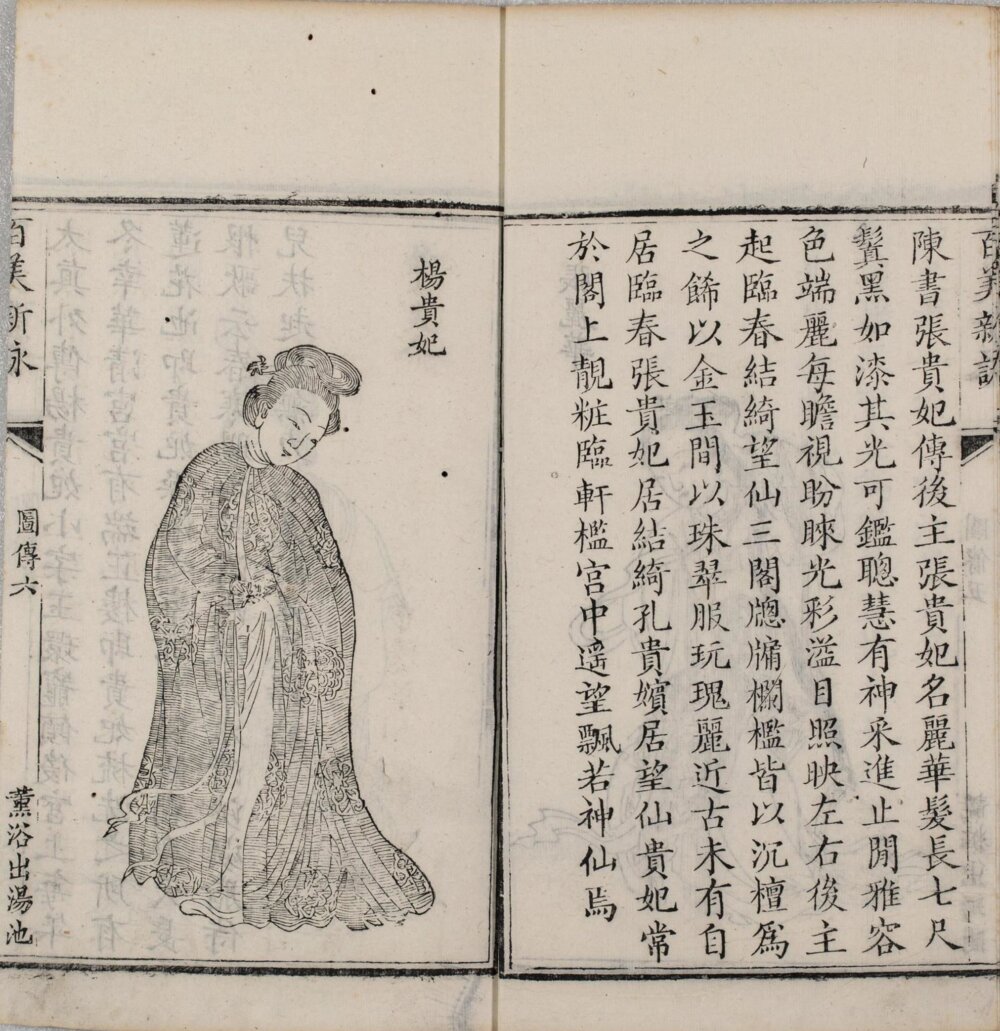 百美新詠
陳書張貴妃傳後主張貴妃名麗華髮長七尺
鬒黑如漆其光可鑑聰慧有神采進止閒雅容
色端麗每瞻視盼睞光彩溢目照映左右後主
起臨春結綺望仙三閣牕牖欄檻皆以沉檀爲
之餙以金玉間以珠翠服玩瑰麗近古未有自
居臨春張貴妃居結綺孔貴嬪居望仙貴妃常
於閣上靚粧臨軒檻宮中遥望飄若神仙焉
楊貴妃
百美新詠
圖傳六
薰浴出湯池